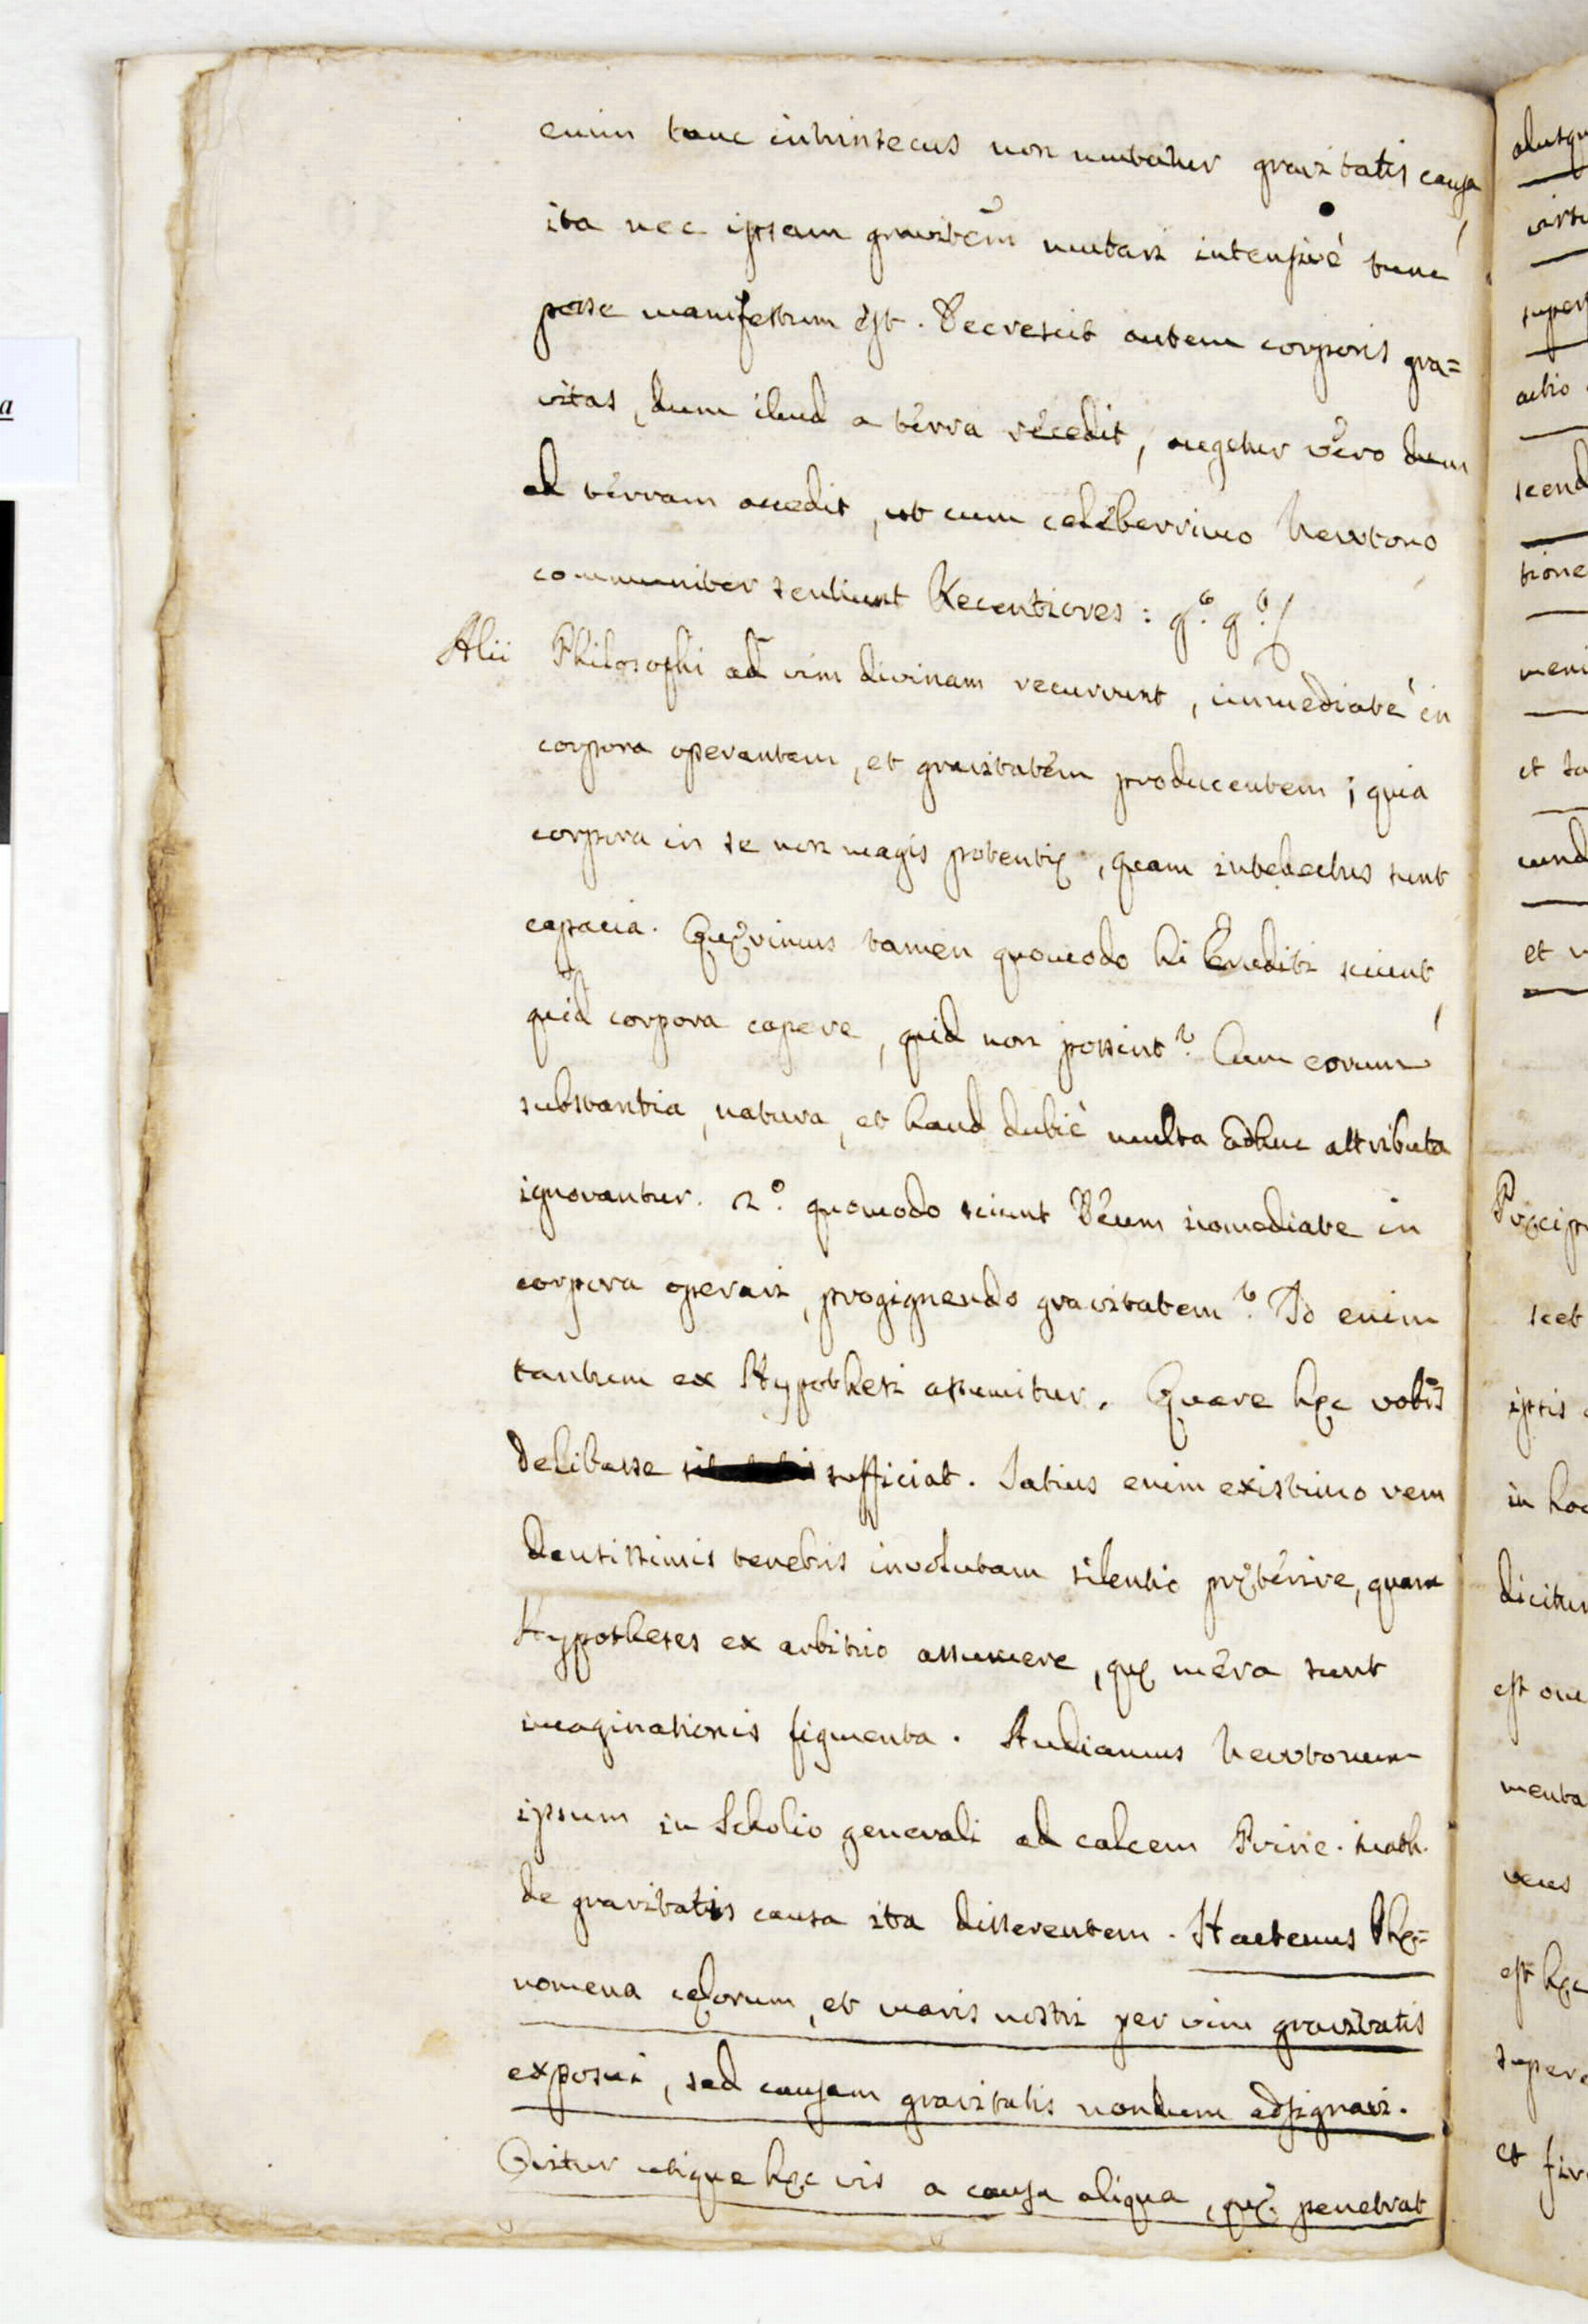 enim tunc intrinsecus non mutatur gravitatis causa,
ita nec ipsam gravitẽm mutari intensivè tunc
posse manifestum est. Decrescit autem corporis gra=
vitas, dum illud a terra recedit, augetur vero dum
ad terram accedit, ut cum celeberrimo Newtono
communiter sentiunt Recentiores:
Alii Philosophi ad vim divinam recurrunt, immediatè in
corpora operantem, et gravitatem producentem; quia
corpora in se non magis potentię, quam intellectus sunt
capacia. Quęrimus tamen quomodo hi Eruditi sciunt,
quid corpora capere, quid non possint? Cum eorum
substantia, natura, et haud dubiè multa adhuc attributa
ignorantur. 2.º quomodo sciunt Deum immediate in
corpora operari, progignendo gravitatem? Id enim
tantum ex Hypothesi assumitur. Quare hęc vobis
delibasse sufficiat. Satius enim existimo rem
densissimis tenebris involutam silentio pręterire, quam
Hypotheses ex arbitrio assumere, quę mera sunt
imaginationis figmenta. Audiamus Newtonum
ipsum in Scholio generali ad calcem Princ. math.
de gravitatis causa ita disserentem. Hactenus Phę=
nomena cęlorum, et maris nostri per vim gravitatis
exposui, sed causam gravitatis nondum adsignavi.
Oritur utique hęc vis a causa aliqua, quę penetrat